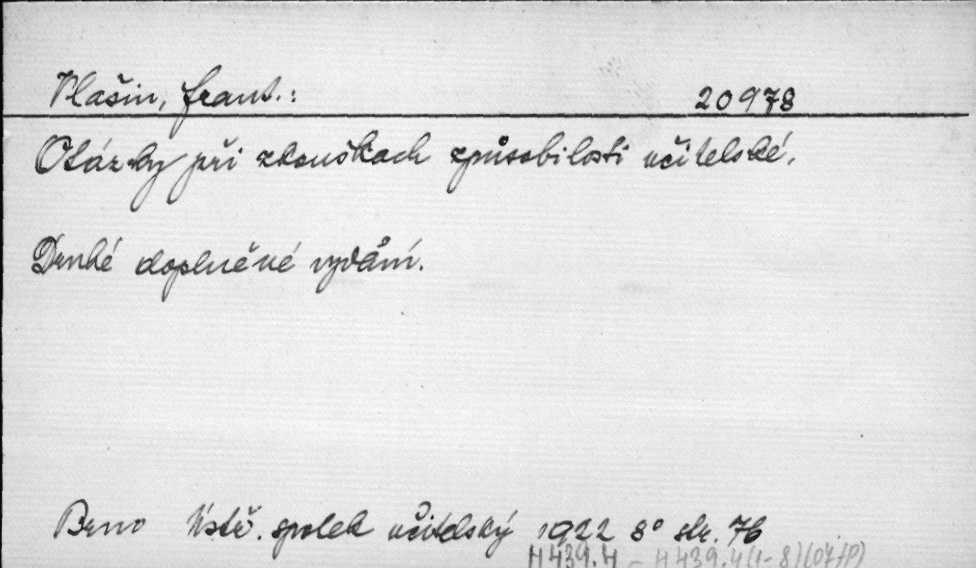 Vlašin, frant.: 20978
Otázky při zkouškach způsobilosti učitelské.
Druhé doplněné vydání.
Brno Ústř. spolek učitelský 1922 8° str. 76
H 439.4 - H 439.4(1-8)